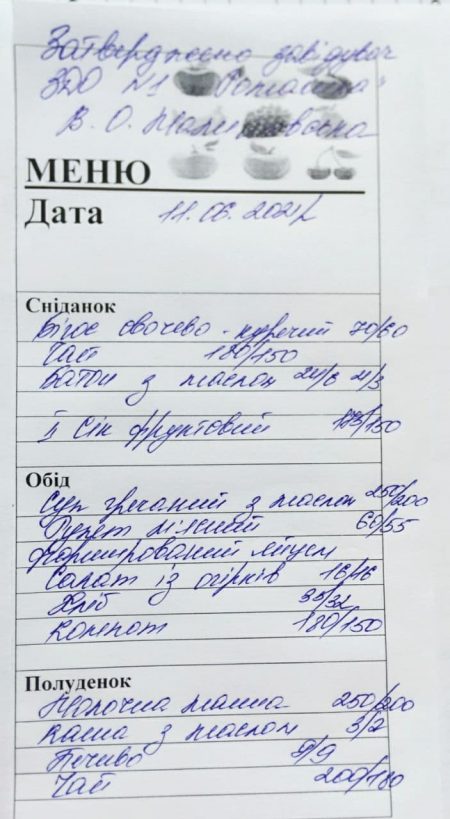 Затверджено завідувач
ЗДО №1 "Ромашка"
В. О.
МЕНЮ
Дата 11.06.2021
Сніданок
Бігос овочево-курячий 70/60
Чай 180/150
Батон з маслом 24/6 21/3
II Сік фруктовий 175/150
Обід
Суп гречаний з маслом 250/200
Рулет м'ясний 60/55
фарширований яйцем
Салат із огірків 16/16
Хліб 35/32
Компот 180/150
Полуденок
Молочна манна 250/200
каша з маслом 3/2
Печиво 9/9
Чай 200/180